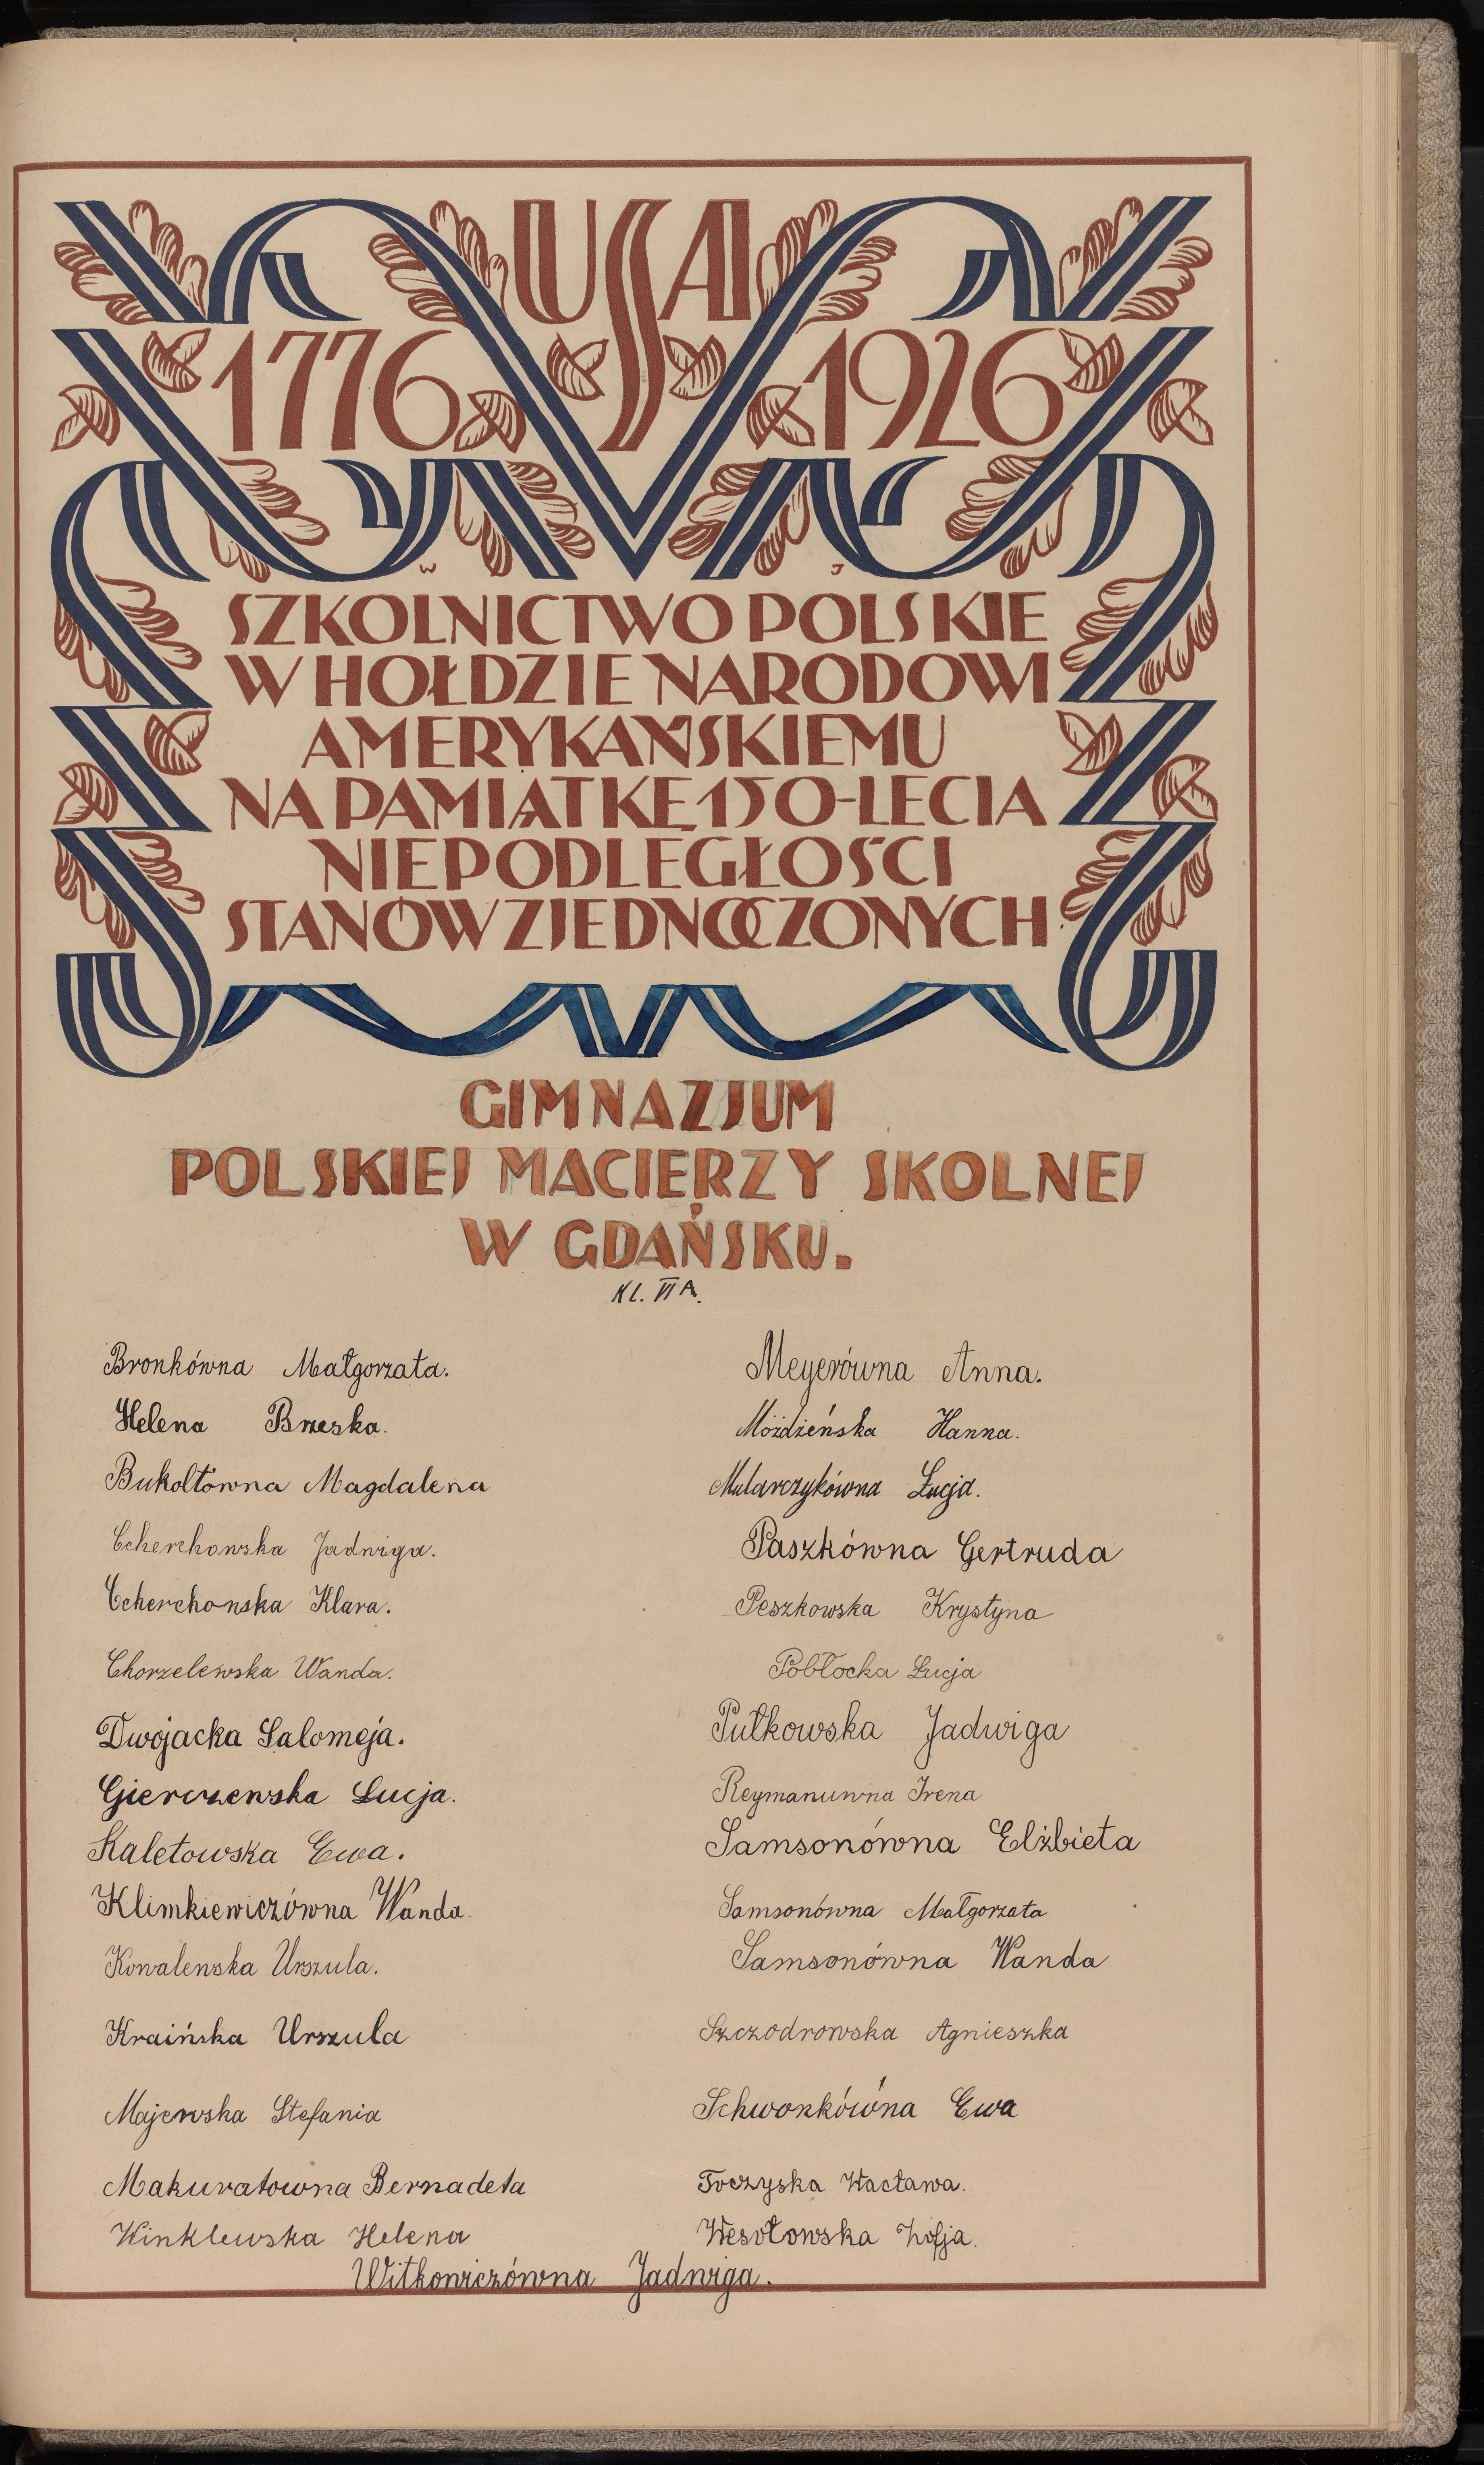 USA
1776 1926
W J
SZKOLNICTWO POLSKIE
W HOŁDZIE NARODOWI
AMERYKAŃSKIEMU
NA PAMIĄTKĘ 150-LECIA
NIEPODLEGŁOŚCI
STANÓW ZJEDNOCZONYCH
GIMNAZJUM
POLSKIEJ MACIERZY SKOLNEJ
W GDAŃSKU.
KL. VI A.
Bronkówna Małgorzata.
Helena Brzeska.
Bukołtówna Magdalena
Ccherchowska Jadwiga.
Ccherchowska Klara.
Chorzelewska Wanda.
Dwojacka Salomeja.
Gierczewska Łucja.
Kaletowska Ewa.
Klimkiewiczówna Wanda.
Kowalewska Urszula.
Kraińska Urszula
Majewska Stefania
Makuratowna Bernadeta
Winklewska Helena
Witkowiczówna Jadwiga.
Meyerówna Anna.
Możdżeńska Hanna.
Mularczykówna Łucja.
Paszkówna Gertruda
Peszkowska Krystyna
Pobłocka Łucja
Pułkowska Jadwiga
Reymanuwna Irena
Samsonówna Elżbieta
Samsonówna Małgorzata
Samsonówna Wanda
Szczodrowska Agnieszka
Schwonkówna Ewa
Toczyska Wacława.
Wesołowska Zofja.